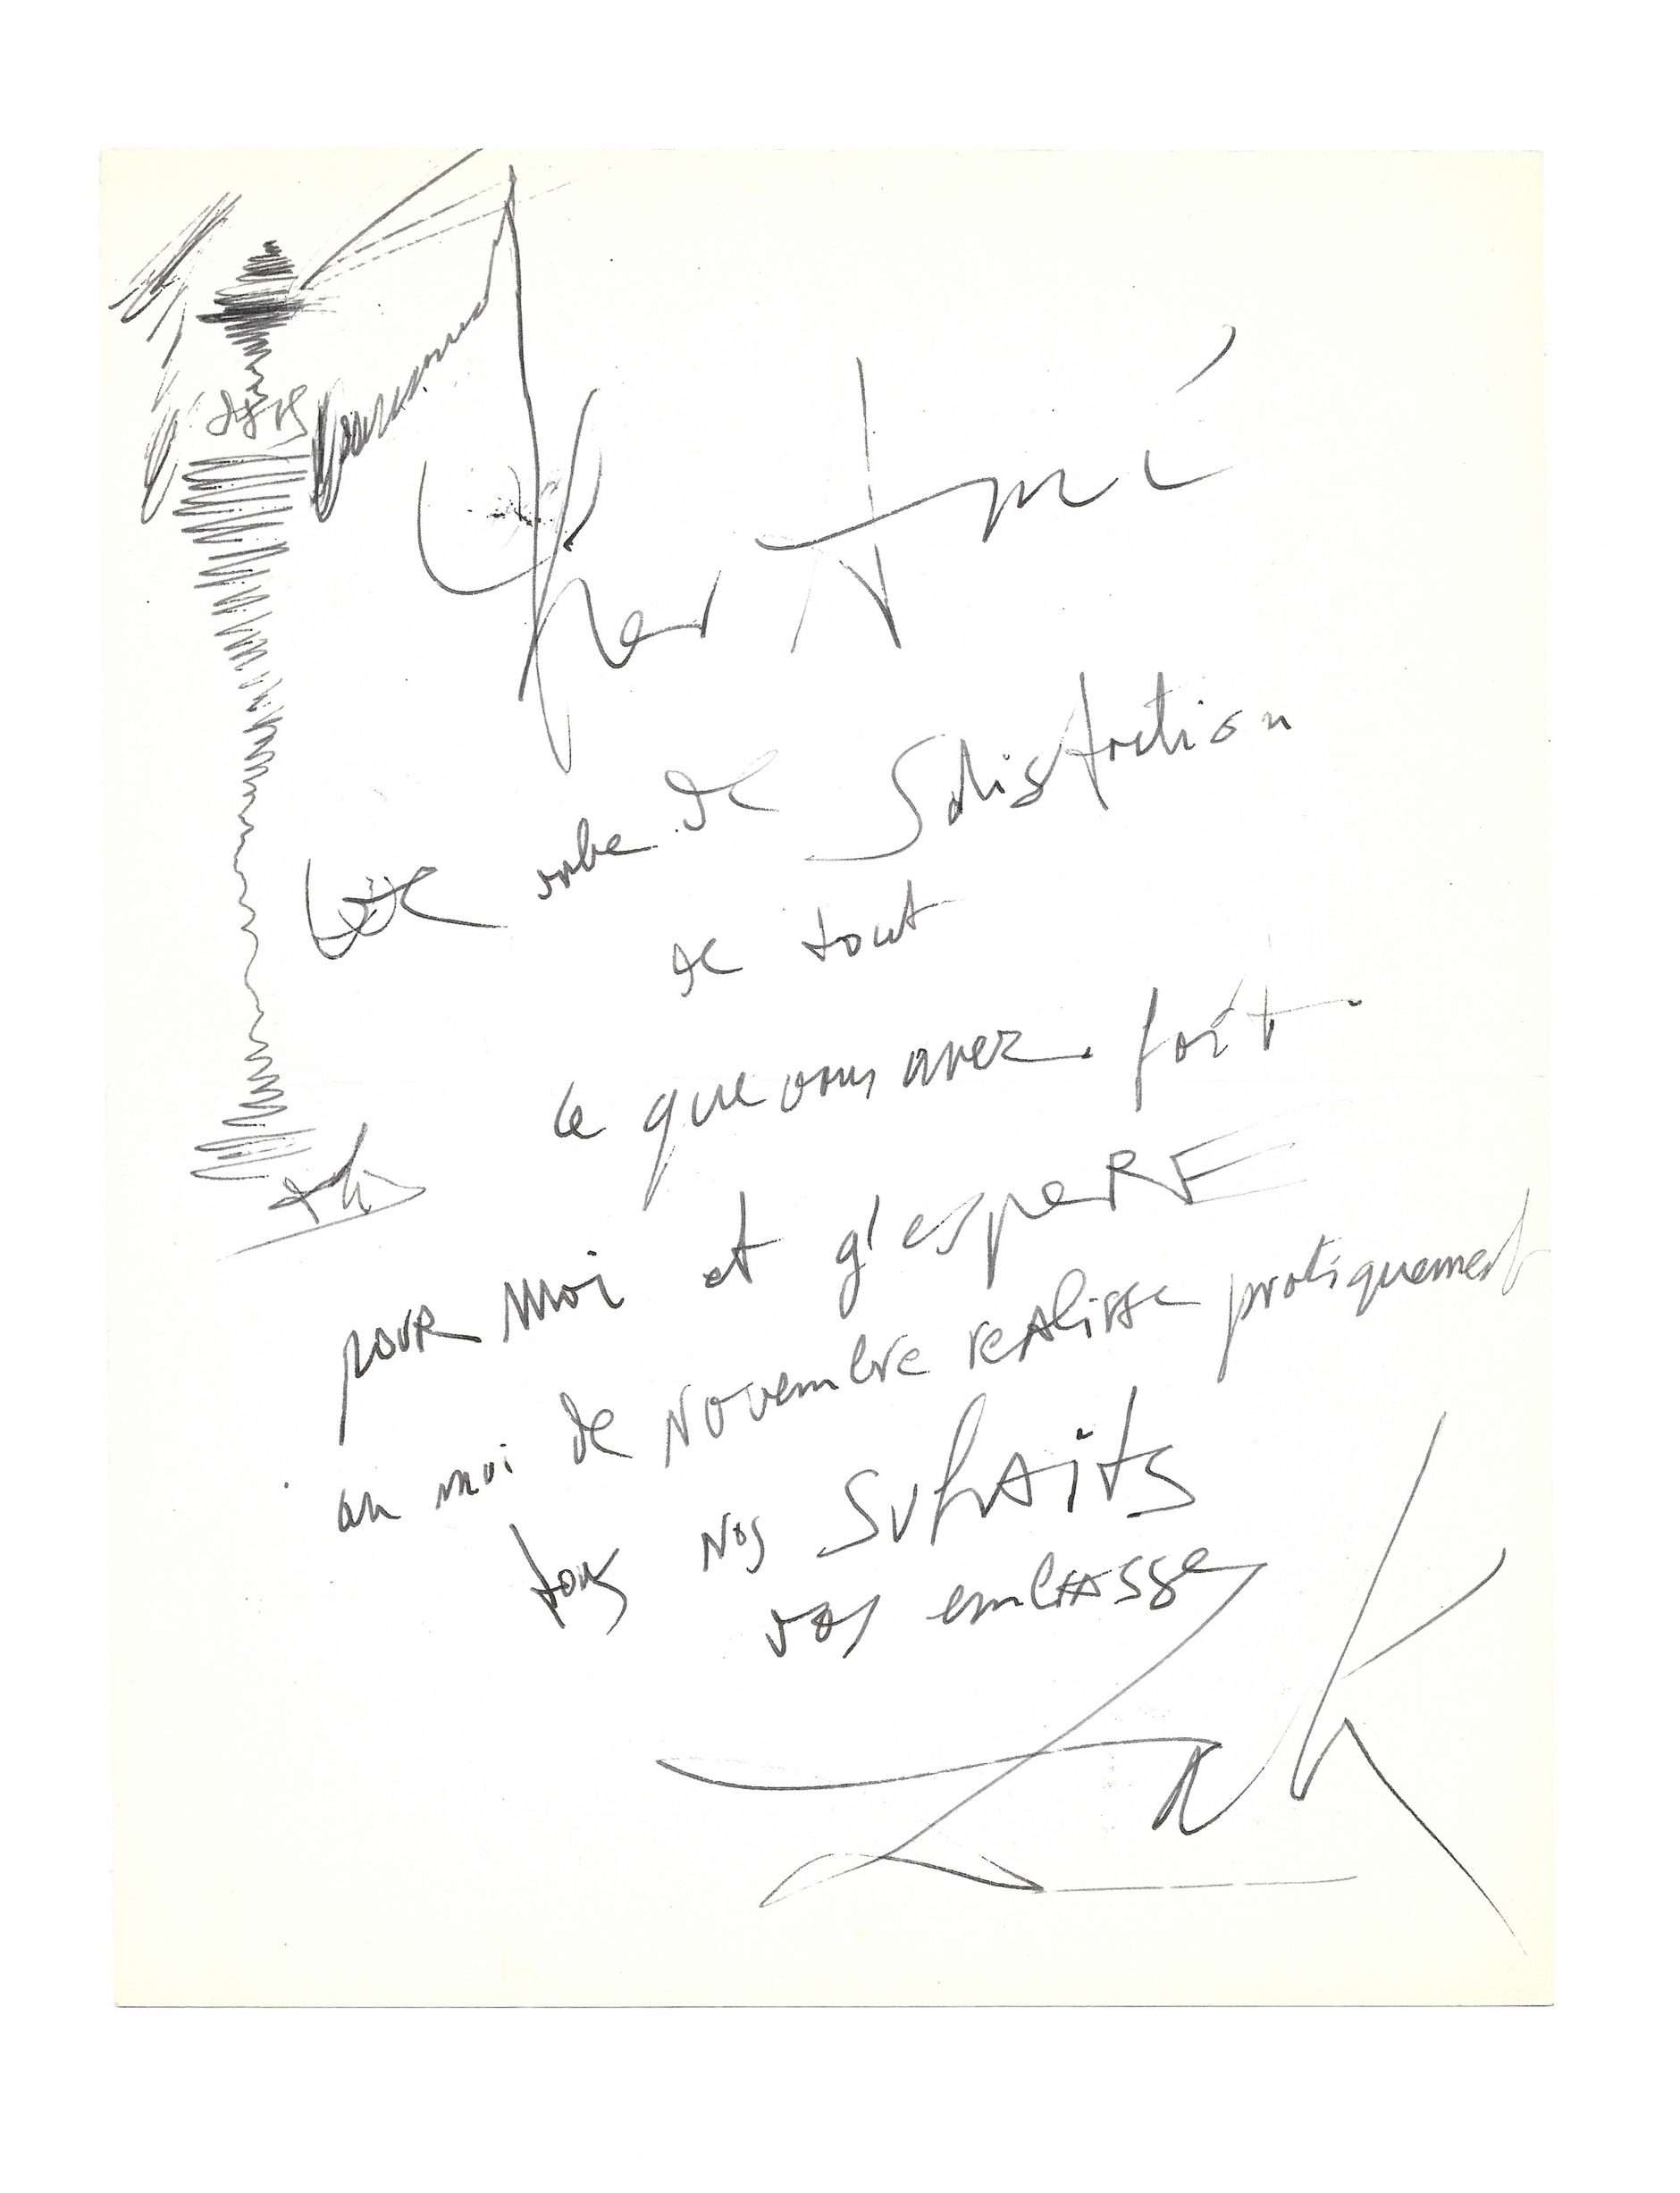 Cher Ami
de Satisfaction
de tout
ce que vous avez fait
pour moi et g'espeRE
au moi de Novembre reAlisse pratiquement
tous Nos SUhAits
vos embrAsse